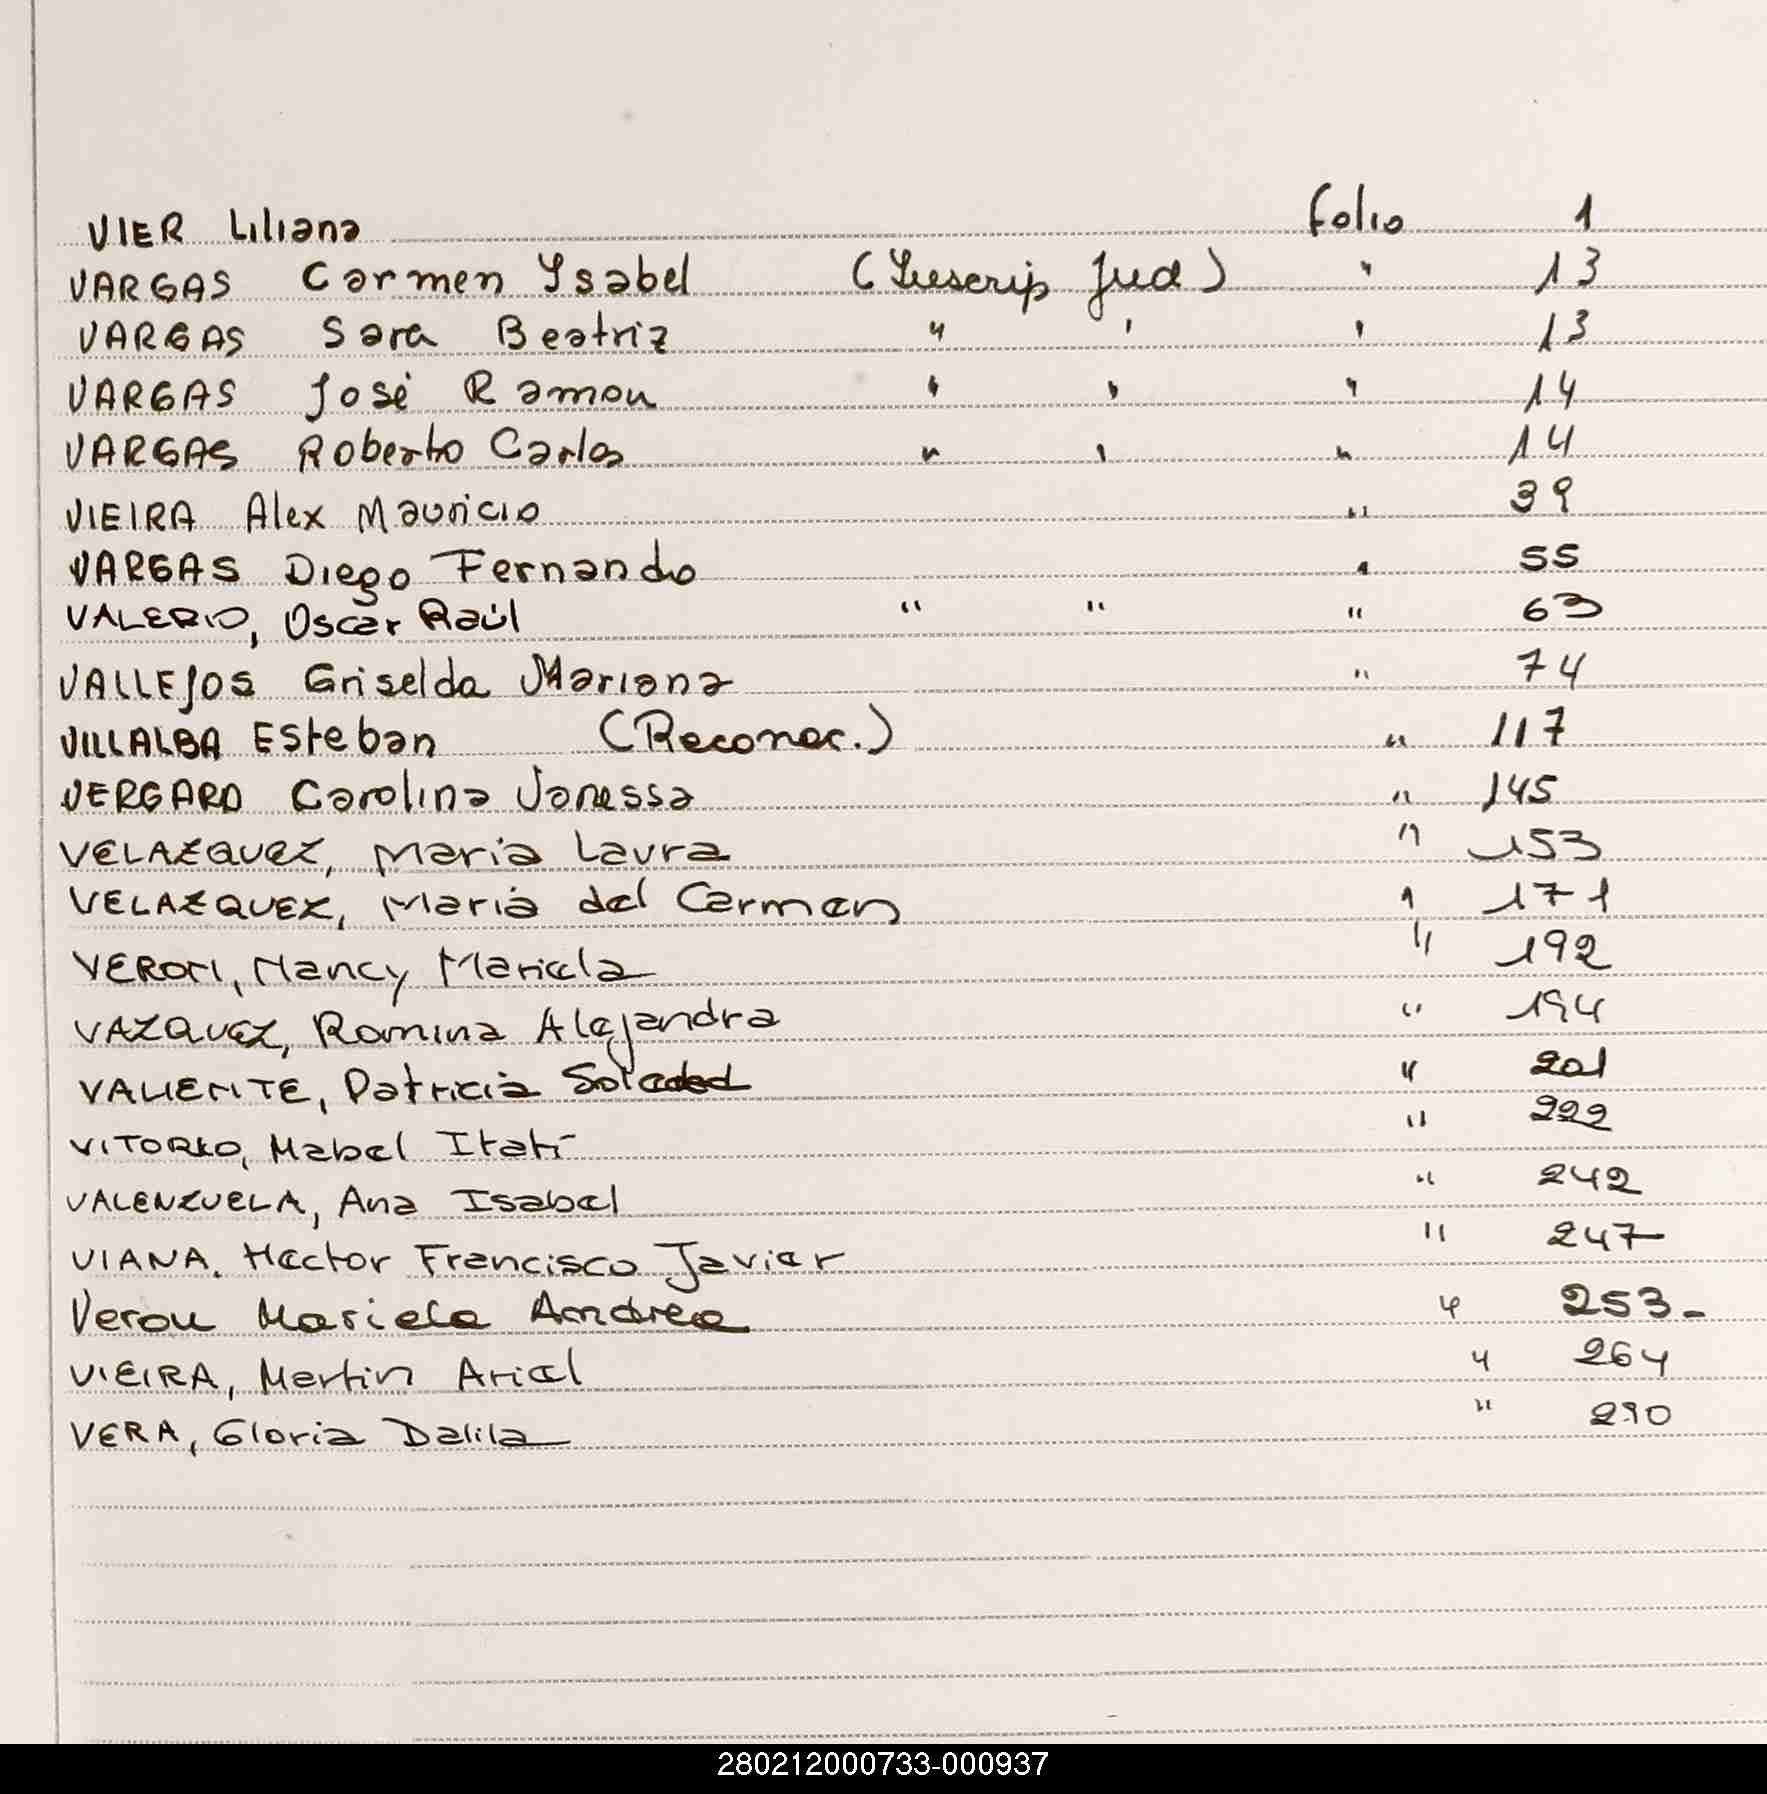 VIER Liliana folio 1
VARGAS Carmen Ysabel (Inscrip Jud) " 13
VARGAS Sara Beatriz " " " 13
VARGAS José Ramon " " " 14
VARGAS Roberto Carlos " " " 14
VIEIRA Alex Mauricio " 39
VARGAS Diego Fernando " 55
VALERIO, Oscar Raúl " " " 63
VALLEJOS Griselda Mariana " 74
VILLALBA Esteban (Reconoc.) " 117
VERGARA Carolina Vanessa " 145
VELAZQUEZ, Maria Laura " 153
VELAZQUEZ, Maria del Carmen " 171
VERON, Nancy Mariela " 192
VAZQUEZ, Romina Alejandra " 194
VALIENTE, Patricia Soledad " 201
Mabel Itatí " 222
VALENZUELA, Ana Isabel " 242
VIANA. Hector Francisco Javier " 247
Veron Mariela Andrea " 253-
VIEIRA, Martin Ariel " 264
VERA, Gloria Dalila " 290
280212000733-000937